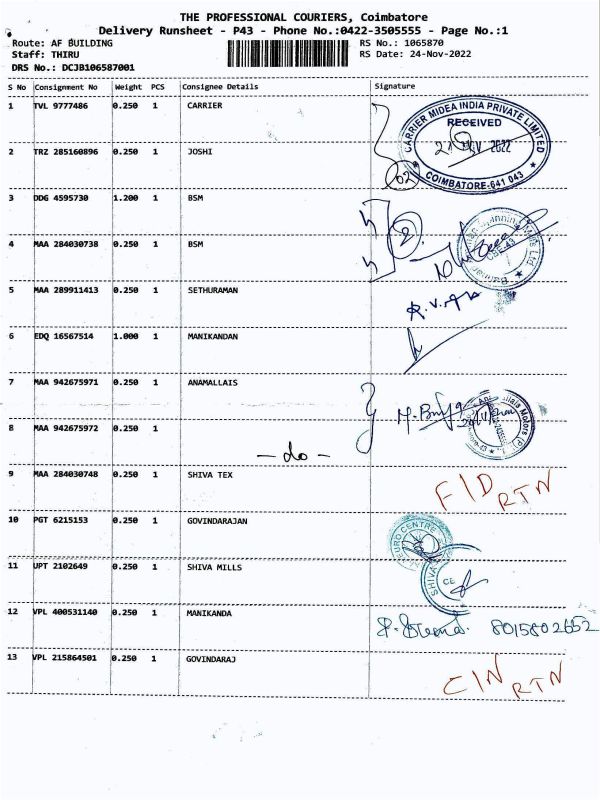 THE PROFESSIONAL COURIERS, Coimbatore
Delivery Runsheet - P43 - Phone No.:0422-3505555 - Page No.:1
Route: AF BUILDING
Staff: THIRU
DRS No.: DCJB106587001
RS No.: 1065870
RS Date: 24-Nov-2022
S No Consignment No Weight PCS Consignee Details Signature
1 TVL 9777486 0.250 1 CARRIER
CARRIER MIDEA INDIA PRIVATE LIMITED
RECEIVED
2022
COIMBATORE-641 043
02
2 TRZ 285160896 0.250 1 JOSHI
3 DDG 4595730 1.200 1 BSM
2
4 MAA 284030738 0.250 1 BSM
CBE-43
5 MAA 289911413 0.250 1 SETHURAMAN
6 EDQ 16567514 1.000 1 MANIKANDAN
7 MAA 942675971 0.250 1 ANAMALLAIS
8 MAA 942675972 0.250 1
- do -
9 MAA 284030748 0.250 1 SHIVA TEX
RTN
10 PGT 6215153 0.250 1 GOVINDARAJAN
NEURO CENTRE
11 UPT 2102649 0.250 1 SHIVA MILLS
SHIVA
12 VPL 400531140 0.250 1 MANIKANDA
8015802652
13 VPL 215864501 0.250 1 GOVINDARAJ
CIN RTN